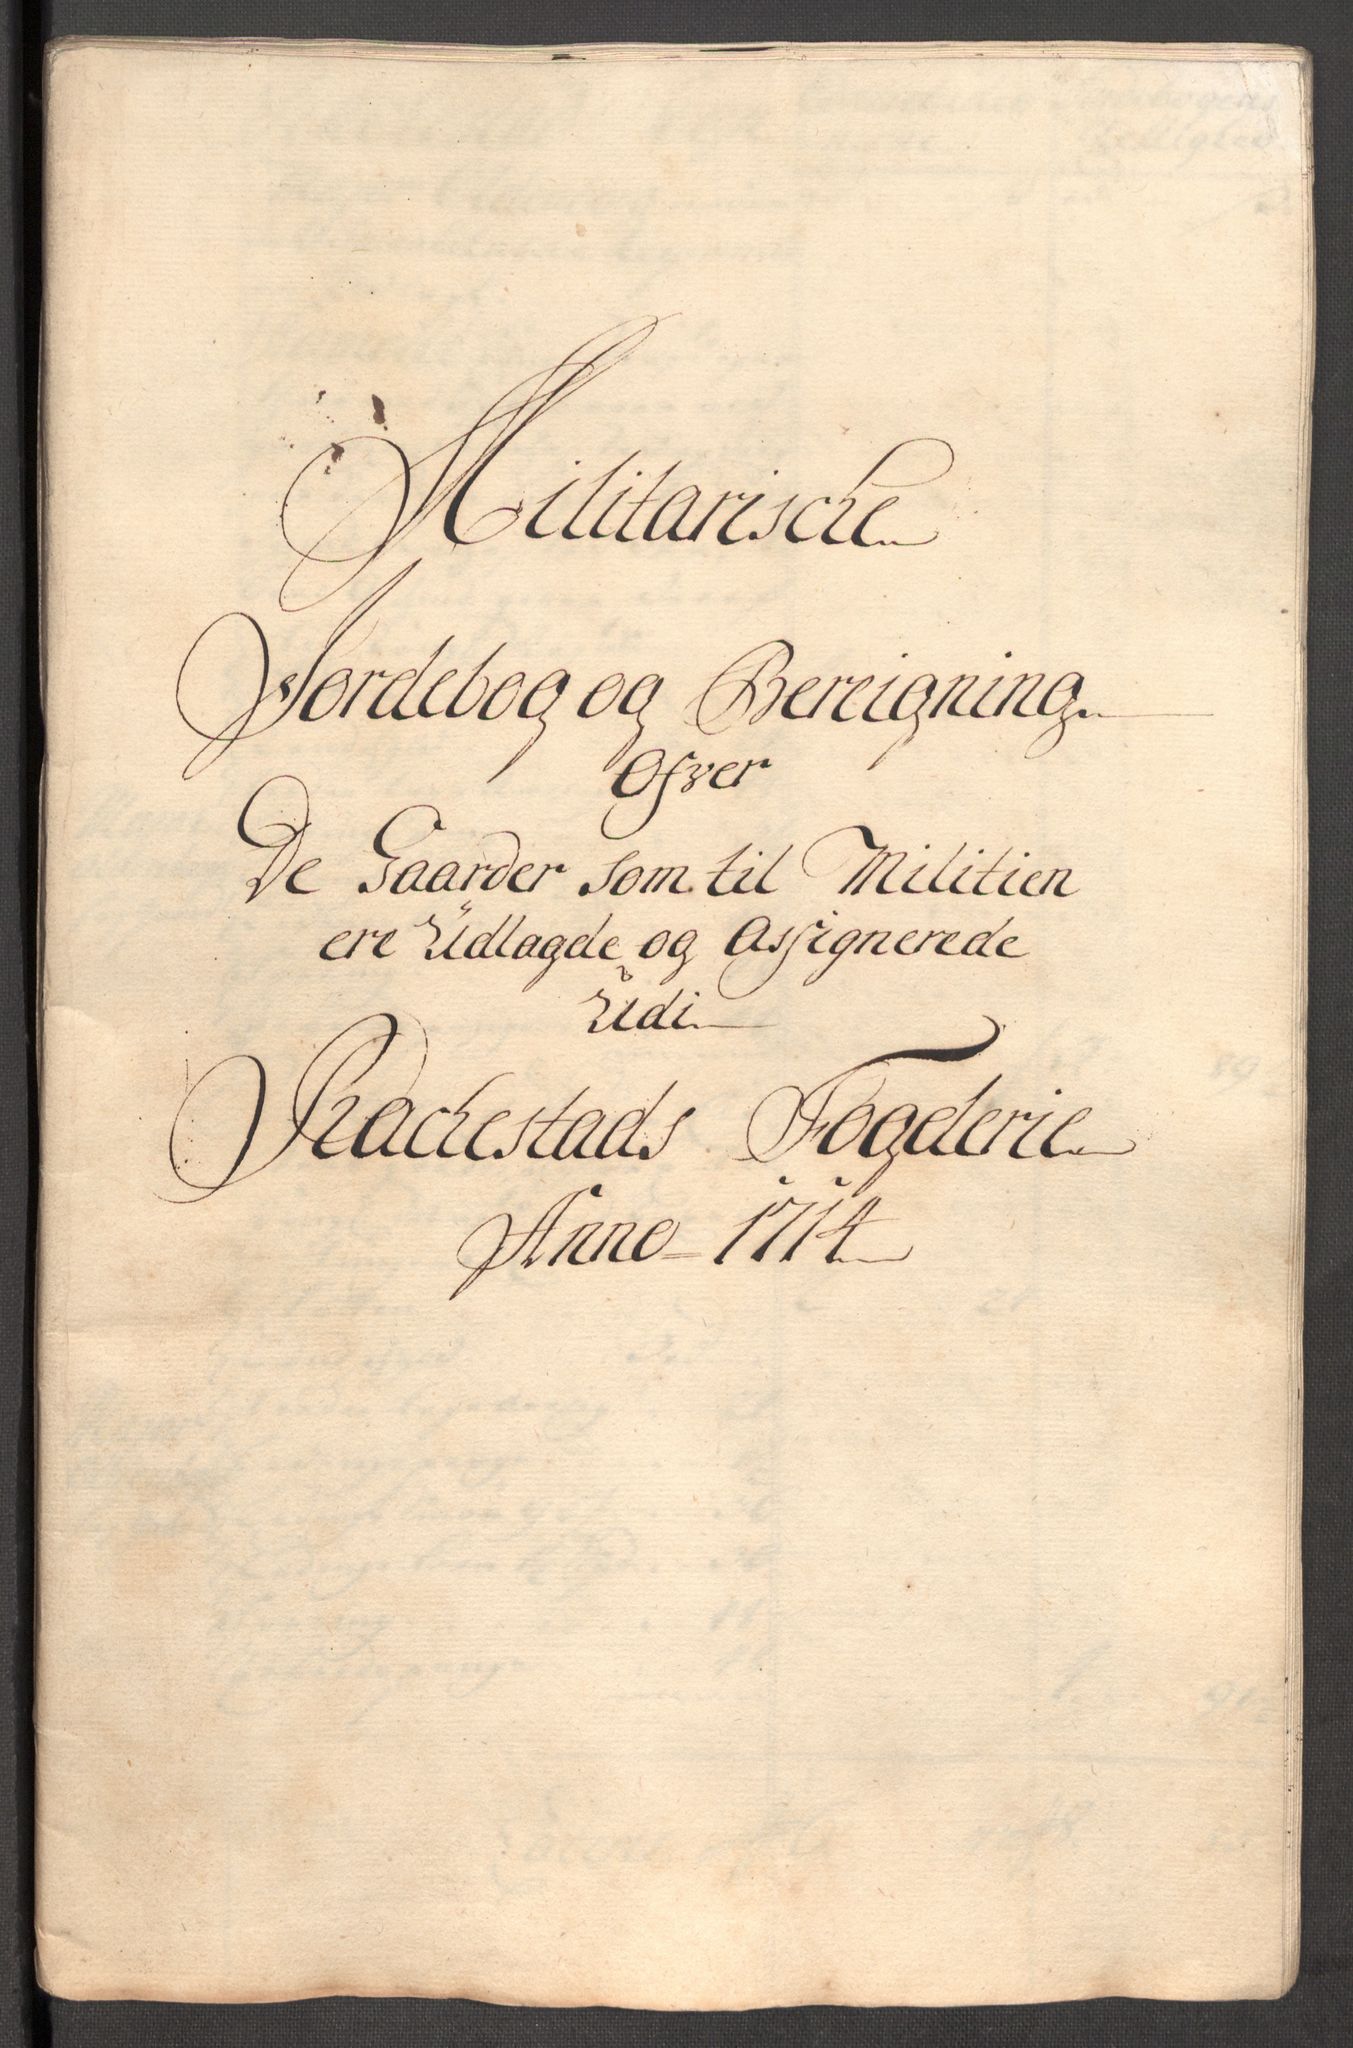 Militarische
Jordebog og Bereigning
Ofver
De Gaarder som til Militien
ere Udlagde og Assignerede
Udi
Rachestads Fogderie
Anno 1714